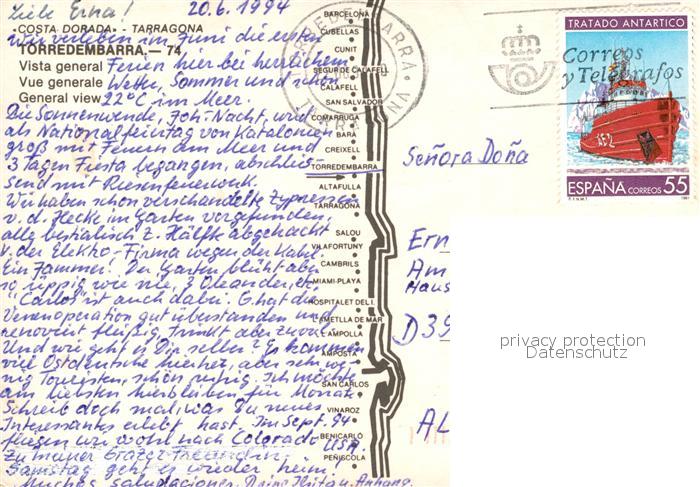 Liebe Erna! 20.6.1994
COSTA DORADA - TARRAGONA
wir verleben im Juni die ersten
TORREDEMBARRA.— 74
Vista general Ferien hier bei herrlichem
Vue generale Wetter, Sommer und schon
General view 22°C im Meer.
Die Sonnenwende, Joh-Nacht, wird
als Nationalfeiertag von Katalonien
groß mit Feuern am Meer und
3 Tagen Fiesta begangen, abschlies-
send mit Riesenfeuerwerk.
Wir haben schon verschandelte Zypressen
v. d. Hecke im Garten vorgefunden,
alle bestialisch z. Hälfte abgehackt
v. der Elektro-Firma wegen der Kabel.
Ein Jammer! Der Garten blüht aber
so üppig wie nie, 3 Oleander, etc.
"Carlos" ist auch dabei. G. hat die
Venenoperation gut überstanden und
renoviert fleißig, trinkt aber zuvor
Und wie geht es Dir selber? Es kommen
viel Ostdeutsche hierher, aber sehr we-
nig Touristen, schön ruhig. Ich möchte
am liebsten hierbleiben für Monate
Schreib doch mal, was Du neues
Interessantes erlebt hast. Im Sept. 94
fliegen wir wohl nach Colorado
USA.
zu meiner Grazer Freundin.
Samstag geht es wieder heim
Muchos saludaciones Deine Ilsita u. Anhang.
BARCELONA
CUBELLAS
CUNIT
SEGUR DE CALAFELL
CALAFELL
SAN SALVADOR
COMARRUGA
BARA
CREIXELL
TORREDEMBARRA
ALTAFULLA
TARRAGONA
SALOU
VILAFORTUNY
CAMBRILS
MIAMI-PLAYA
HOSPITALET DEL I.
L'AMETLLA DE MAR
L'AMPOLLA
AMPOSTA
SAN CARLOS
VINAROZ
BENICARLÓ
PEÑISCOLA
TORREDEMBARRA
Correos
y Telégrafos
TRATADO ANTARTICO
ESPAÑA CORREOS 55
F.N.M.T. 1991
Señora Doña
Ern
Am
Haus
D39
AL
privacy protection
Datenschutz